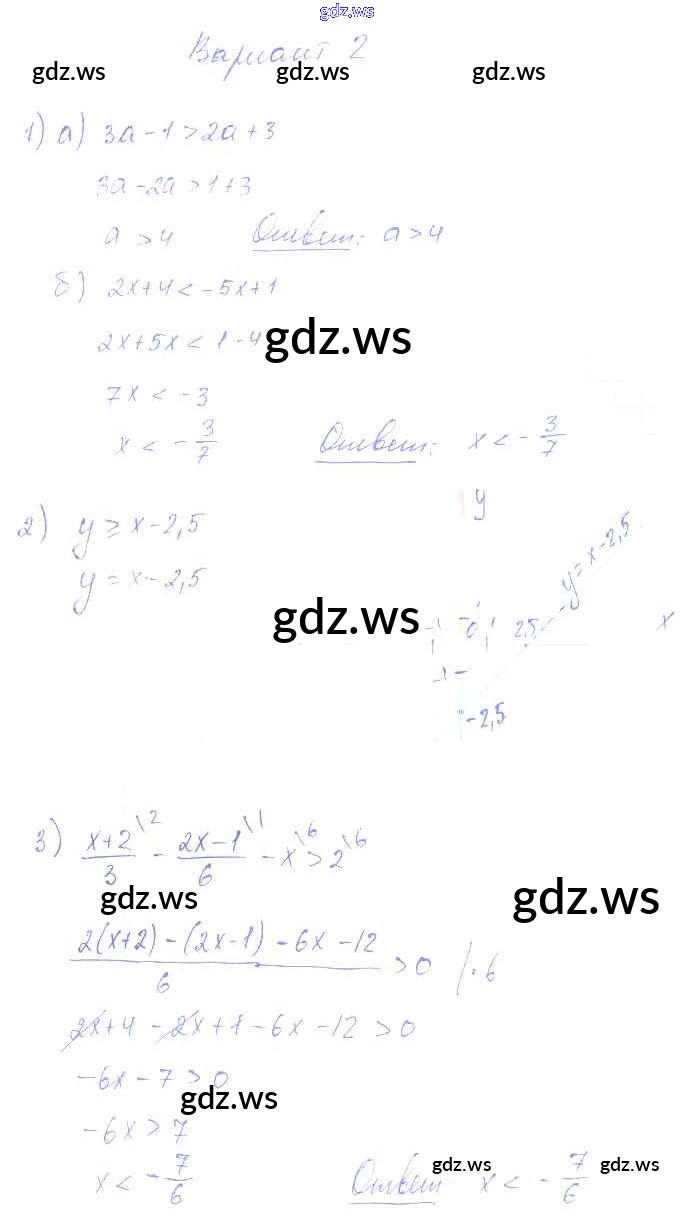 gdz.ws
Вариант 2
gdz.ws gdz.ws gdz.ws
1) а) 3a - 1 > 2a + 3
3a - 2a > 1 + 3
a > 4 Ответ: a > 4
б) 2x + 4 < - 5x + 1
2x + 5x < 1 - 4
gdz.ws
7x < - 3
x < - 3/7 Ответ: x < - 3/7
2) y ≥ x - 2,5
y = x - 2,5
y
y = x - 2,5
gdz.ws
-1 0 1 2,5 x
-1
-2,5
3) (x+2)/3 \2 - (2x-1)/6 \1 - x \6 > 2 \6
gdz.ws gdz.ws
(2(x+2) - (2x-1) - 6x - 12)/6 > 0 /·6
2x + 4 - 2x + 1 - 6x - 12 > 0
-6x - 7 > 0
gdz.ws
-6x > 7
x < - 7/6 Ответ: x < - 7/6
gdz.ws gdz.ws